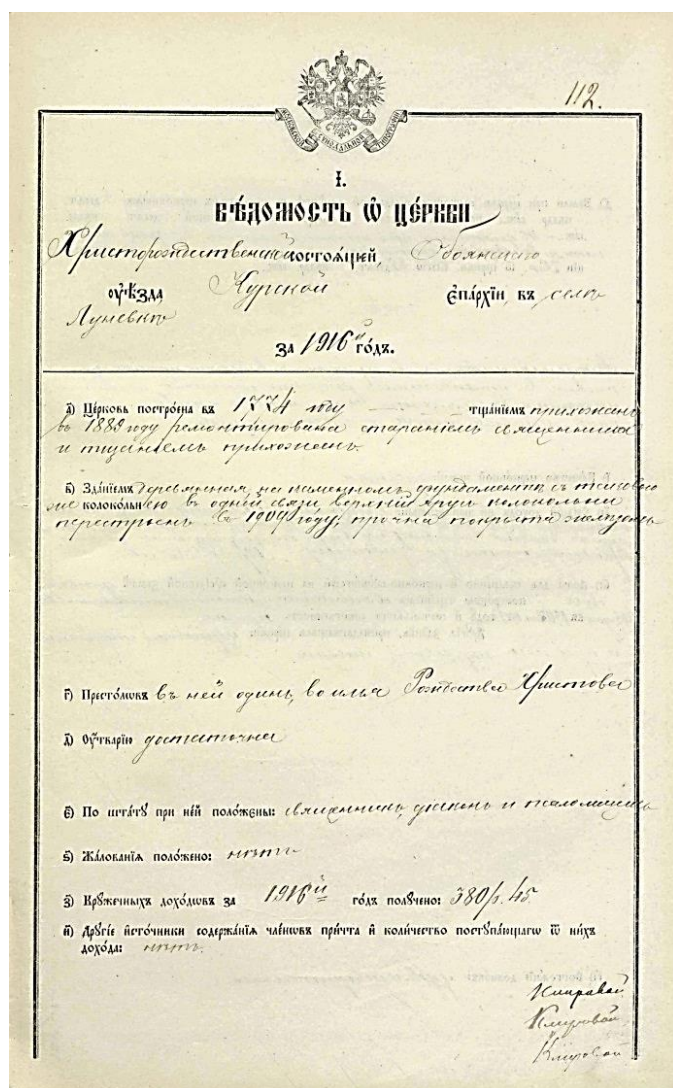 112.
СИНОДАЛЬНОЙ ТИПОГРАФІИ
І.
ВѢ́ДОМОСТЬ Ѡ҆ ЦЕ́РКВИ
Христорождественской состоѧ́щей, Обоянскаго
оу҆ѣ́зда Курской є҆па́рхїи, въ селѣ
Луневкѣ
за 1916й го́дъ.
а҃) Це́рковь постро́ена въ 1774 году тща́нїемъ прихожанъ
въ 1889 году ремонтирована стараніемъ священника
и тщаніемъ прихожанъ.
в҃) Зда́нїемъ деревянная, на каменномъ фундаментѣ съ таковою
же колоко́льнею въ одной связи, верхній ярусъ колокольни
перестроенъ въ 1909 году, прочна покрыта желѣзомъ
г҃) Престо́лѡвъ въ ней одинъ, во имя Рождества Христова
д҃) Оу҆́тварїю достаточна
є҃) По шта́ту при не́й поло́жены: священникъ, діаконъ и псаломщикъ
ѕ҃) Жа́лованїѧ поло́жено: нѣтъ
з҃) Крꙋ́жечныхъ дохо́дѡвъ за 1916й го́дъ полꙋ́чено: 380 р. 45
и҃) Дрꙋгі́е и҆сто́чники содержа́нїѧ чле́нѡвъ при́чта и҆ коли́чество постꙋпа́ющагѡ ѿ ни́хъ
дохо́да: нѣтъ.